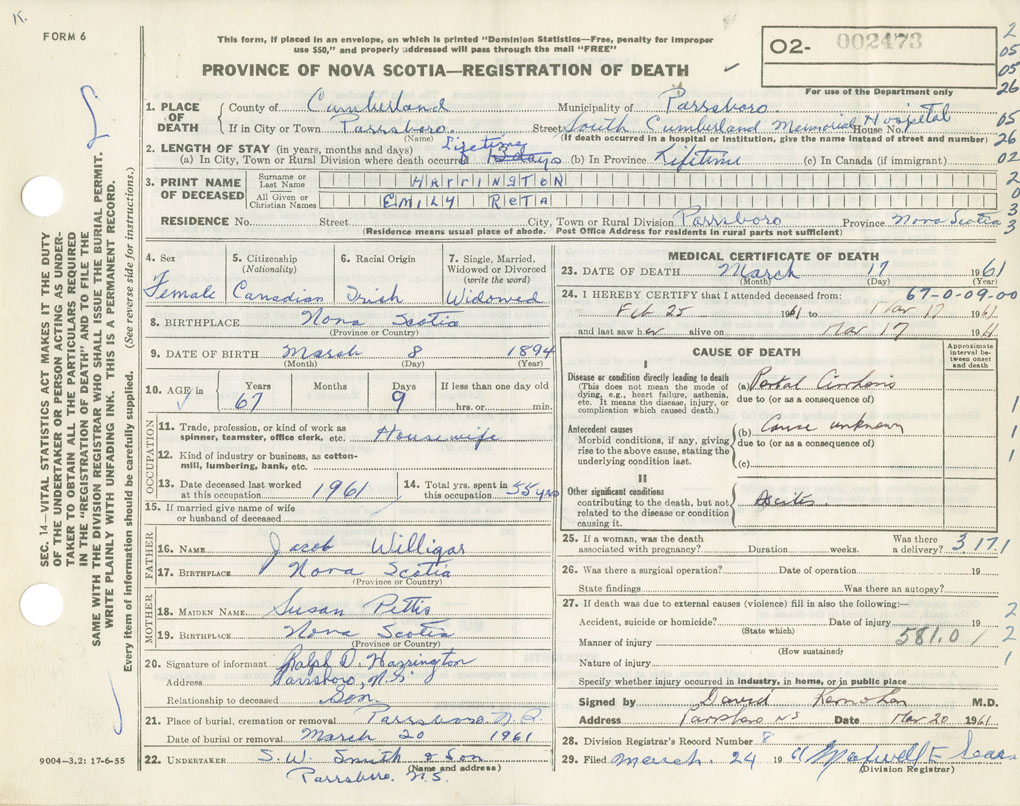 K.
FORM 6
This form, if placed in an envelope, on which is printed "Dominion Statistics—Free, penalty for improper
use $50," and properly addressed will pass through the mail "FREE"
PROVINCE OF NOVA SCOTIA—REGISTRATION OF DEATH
O2- 002473
For use of the Department only
2
05
05
26
05
26
02
2
0
3
3
1. PLACE OF DEATH
County of Cumberland Municipality of Parrsboro
If in City or Town Parrsboro. Street South Cumberland Memorial Hospital House No.
(Name) (If death occurred in a hospital or Institution, give the name instead of street and number)
2. LENGTH OF STAY (in years, months and days) Lifetime
(a) In City, Town or Rural Division where death occurred 13 days (b) In Province Lifetime (c) In Canada (if immigrant)
3. PRINT NAME OF DECEASED
Surname or Last Name HArrINGTON
All Given or Christian Names EMILY ReTA
RESIDENCE No. Street City, Town or Rural Division Parrsboro Province Nova Scotia
(Residence means usual place of abode. Post Office Address for residents in rural parts not sufficient)
4. Sex Female
5. Citizenship (Nationality) Canadian
6. Racial Origin Irish
7. Single, Married, Widowed or Divorced (write the word) Widowed
8. BIRTHPLACE Nova Scotia
(Province or Country)
9. DATE OF BIRTH March 8 1894
(Month) (Day) (Year)
10. AGE in Years Months Days If less than one day old
67 9 hrs. or min.
OCCUPATION
11. Trade, profession, or kind of work as
spinner, teamster, office clerk, etc. Housewife
12. Kind of industry or business, as cotton-
mill, lumbering, bank, etc.
13. Date deceased last worked
at this occupation 1961
14. Total yrs. spent in
this occupation 55 yrs
15. If married give name of wife
or husband of deceased
FATHER
16. NAME Jacob Willigar
17. BIRTHPLACE Nova Scotia
(Province or Country)
MOTHER
18. MAIDEN NAME Susan Pettis
19. BIRTHPLACE Nova Scotia
(Province or Country)
20. Signature of informant Ralph D. Harrington
Address Parrsboro, N.S.
Relationship to deceased Son
21. Place of burial, cremation or removal Parrsboro N.S.
Date of burial or removal March 20 1961
22. UNDERTAKER S. W. Smith & Son
(Name and address)
Parrsboro. N.S.
9004—3.2: 17-6-55
MEDICAL CERTIFICATE OF DEATH
23. DATE OF DEATH March 17 1961
(Month) (Day)
24. I HEREBY CERTIFY that I attended deceased from: 67-0-09-00
Feb 25 1961 to Mar 17 1961
and last saw her alive on Mar 17 1961
CAUSE OF DEATH
Approximate
interval be-
tween onset
and death
I
Disease or condition directly leading to death
(This does not mean the mode of
dying, e.g., heart failure, asthenia,
etc. It means the disease, injury, or
complication which caused death.)
(a) Portal Cirrhosis
due to (or as a consequence of)
Antecedent causes
Morbid conditions, if any, giving
rise to the above cause, stating the
underlying condition last.
(b) Cause unknown
due to (or as a consequence of)
(c)
1
1
1
II
Other significant conditions
contributing to the death, but not
related to the disease or condition
causing it.
Ascites
25. If a woman, was the death
associated with pregnancy? Duration weeks. Was there
a delivery? 3 17.1
26. Was there a surgical operation? Date of operation 19
State findings Was there an autopsy?
27. If death was due to external causes (violence) fill in also the following:—
Accident, suicide or homicide? Date of injury 19
(State which)
Manner of injury 581.0
(How sustained)
Nature of injury
2
2
1
Specify whether injury occurred in industry, in home, or in public place
Signed by David Kernohan M.D.
Address Parrsboro NS Date Mar 20 1961.
28. Division Registrar's Record Number 8
29. Filed March. 24 1961 Maxwell E
(Division Registrar)
SEC. 14—VITAL STATISTICS ACT MAKES IT THE DUTY
OF THE UNDERTAKER OR PERSON ACTING AS UNDER-
TAKER TO OBTAIN ALL THE PARTICULARS REQUIRED
IN THE "REGISTRATION OF DEATH" AND TO FILE THE
SAME WITH THE DIVISION REGISTRAR WHO SHALL ISSUE THE BURIAL PERMIT.
WRITE PLAINLY WITH UNFADING INK. THIS IS A PERMANENT RECORD.
Every item of information should be carefully supplied. (See reverse side for instructions.)